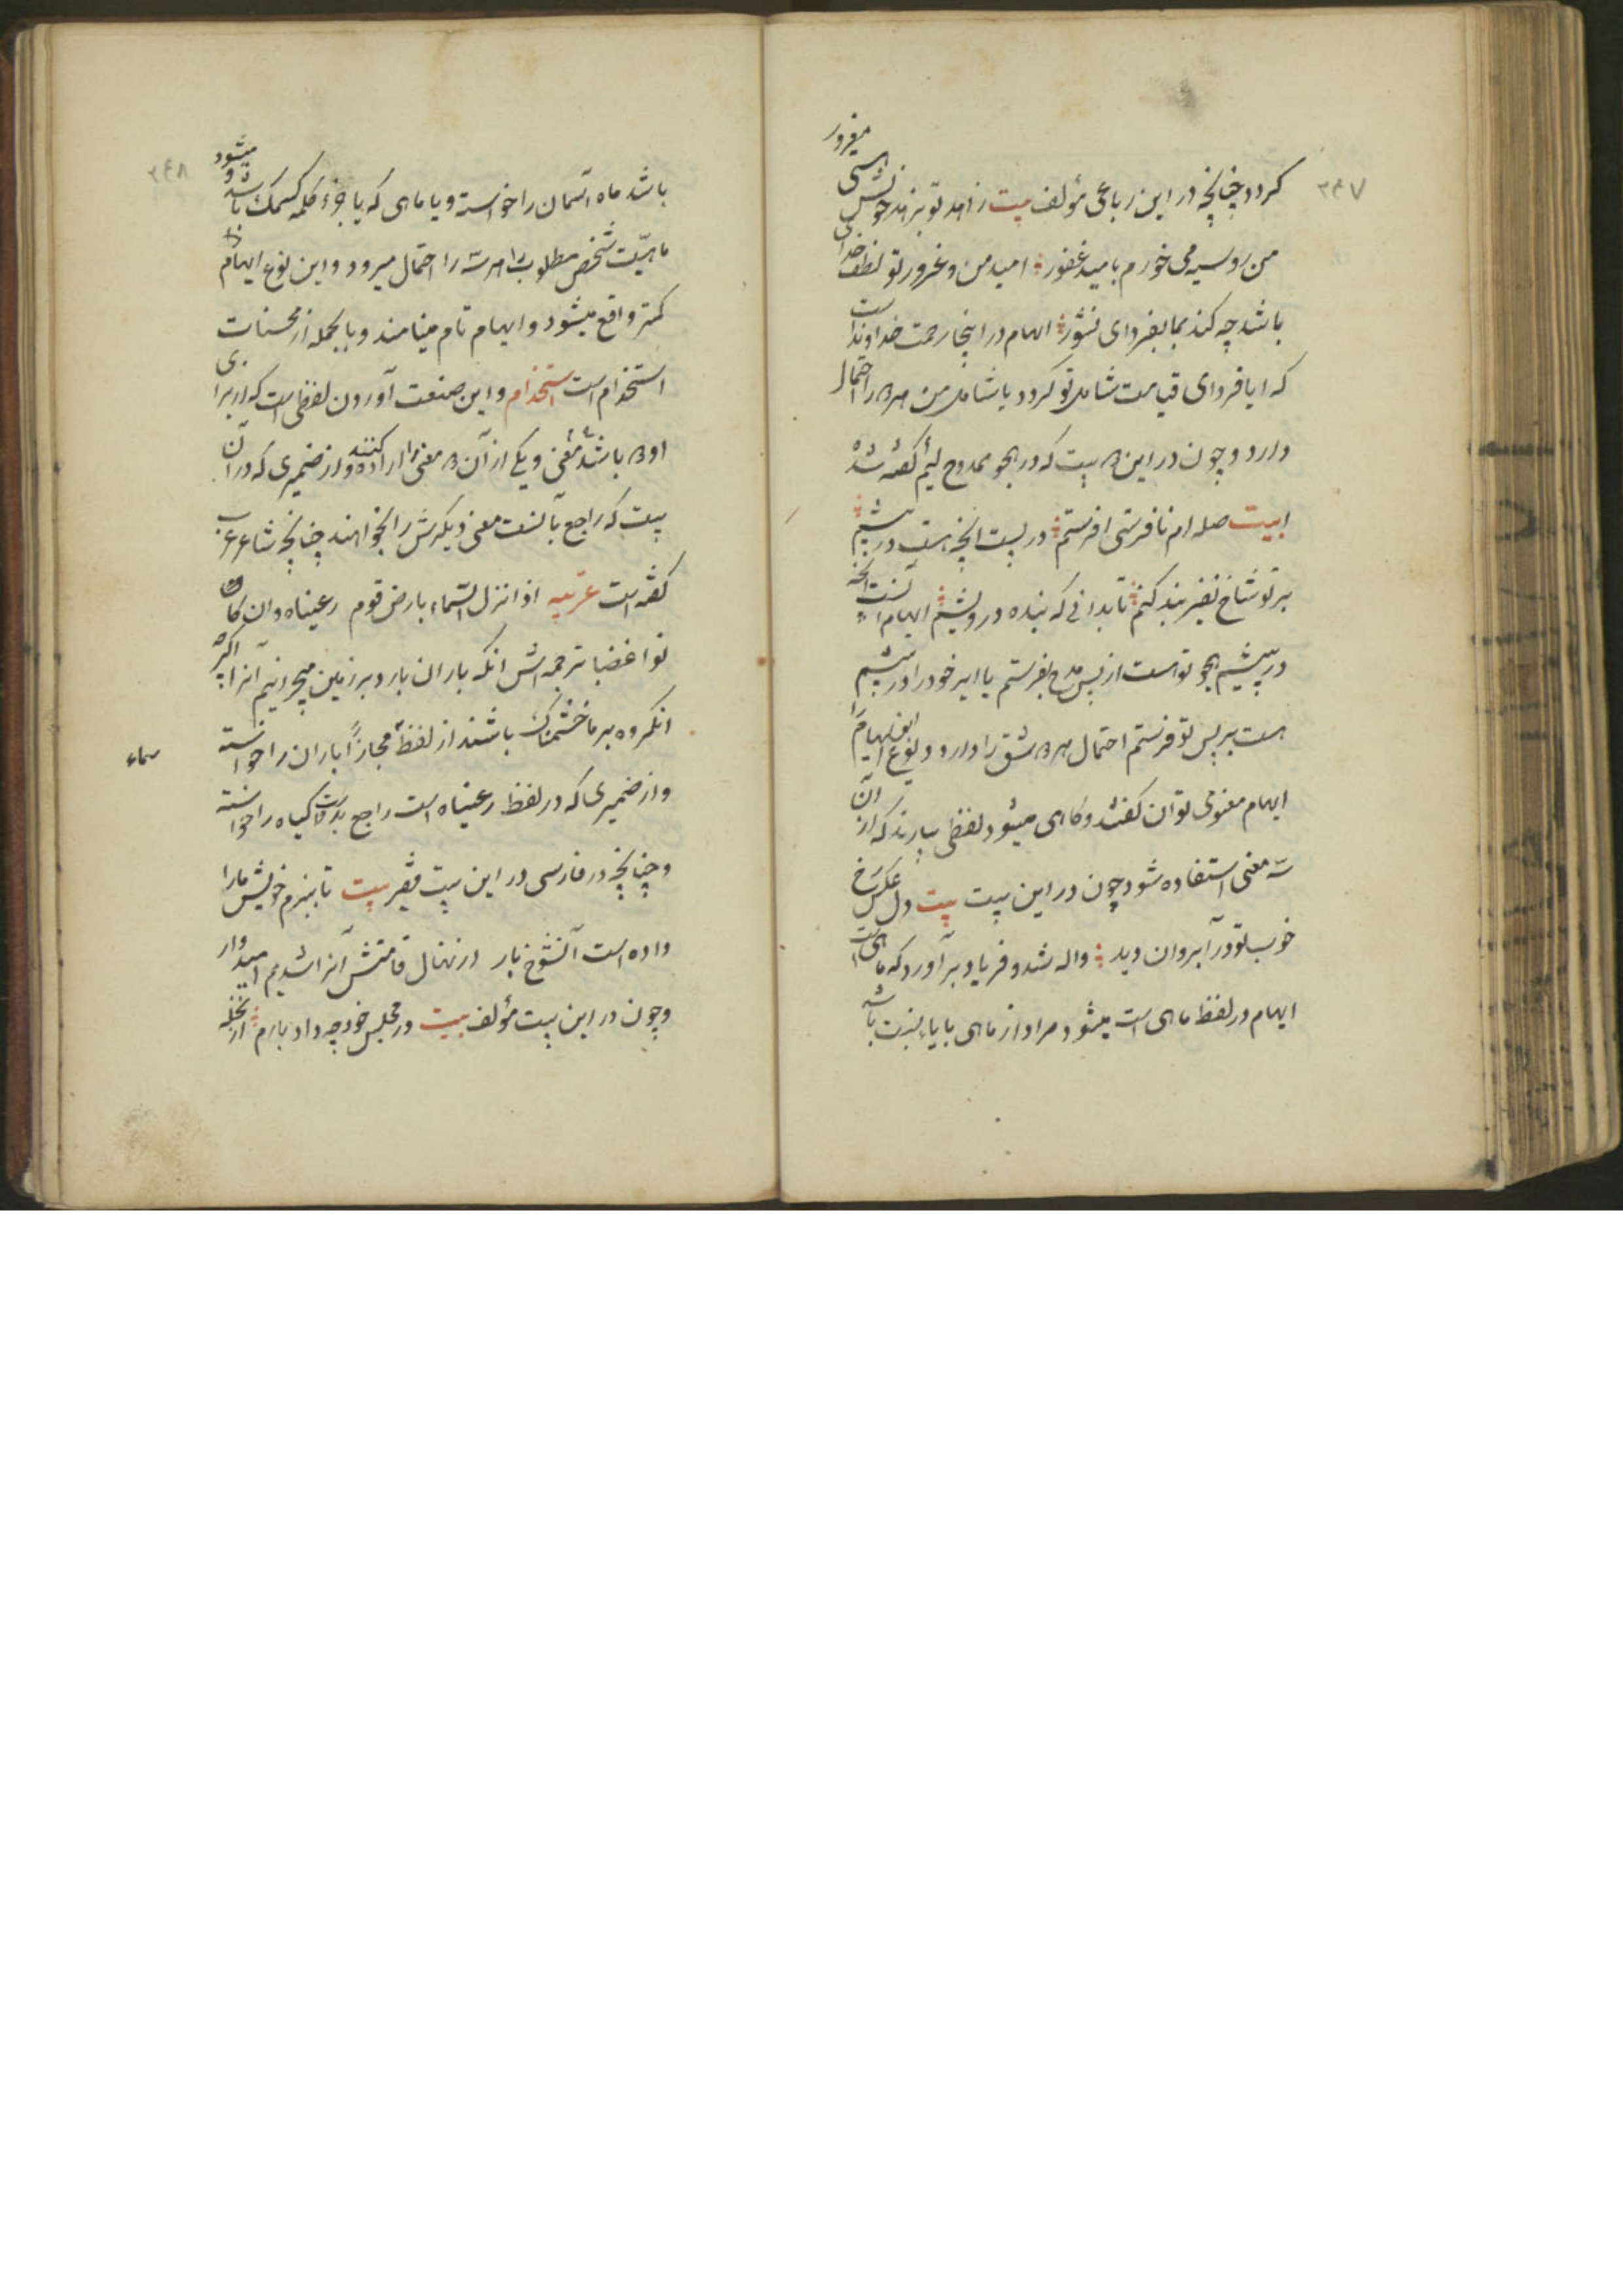 ۲۴۷
گردد چنانچه در این رباعی مؤلف بیت زاهد تو بزهد خویش هستی مغرور
من روسیه می خورم بامید غفور امید من و غرور تو لطف خدای
باشد چه کند بما بفردای نشور ایهام در اینجا رحمت خداوند است
که ایا فردای قیامت شامل تو گردد یا شامل من هر دو را احتمال
دارد و چون در این دو بیت که در هجو ممدوح لئیم گفته شده
ابیت صله ام نافرستی افرستم در پست انچه هست در پیشم
بر تو شاخ نفیر بند کنم تا بدانی که بنده درویشم ایهام آنست انچه
در پیشم هجو تو است از پس مدح بفرستم یا ایر خود را در پیشم
هست بر پس تو فرستم احتمال هر دو شق را دارد و نوع ایهام را
ایهام معنوی توان گفتند و گاهی میشود لفظی بیارند که از آن
سه معنی استفاده شود چون در این بیت بیت دل عکس رخ
خوب تو در آب روان دید واله شد و فریاد برآورد که ماهی است
ایهام در لفظ ماهی است میشود مراد از ماهی با یاء نسبت باشد
۲۴۸
باشد ماه آسمان را خواسته و یا ماهی که یا جزء کلمه کسمک باشد و میشود
ماهیّت شخص مطلوب را هر سه را احتمال میرود و این نوع ایهام
کمتر واقع میشود و ایهام تام مینامند و بالجمله از محسنات
استخدام است استخدام و این صنعت آوردن لفظی است که از برای
او دو معنی باشد و یکی از آن دو معنی را اراده کنند و از ضمیری که در آن
بیت که راجع بآنست معنی دیگرش را بخواهند چنانچه شاعر عرب
گفته است عربیه اذا نزل السّماء بارض قوم رعیناه و ان کا
نوا غضبا ترجمه اش انکه باران بارد بر زمین میچرانیم آنرا اگرچه
انگروه بر ما خشمناک باشند از لفظ مجازاً باران را خواسته
سماء
و از ضمیری که در لفظ رعیناه است راجع بدوست گیاه را خواسته
و چنانچه در فارسی در این بیت فقیر بیت تا ببزم خویش ما را
داده است آنشوخ بار از نهال قامتش آنرا شدیم امیدوار
و چون در این بیت مؤلف بیت در مجلس خود چه داد بارم از نخله